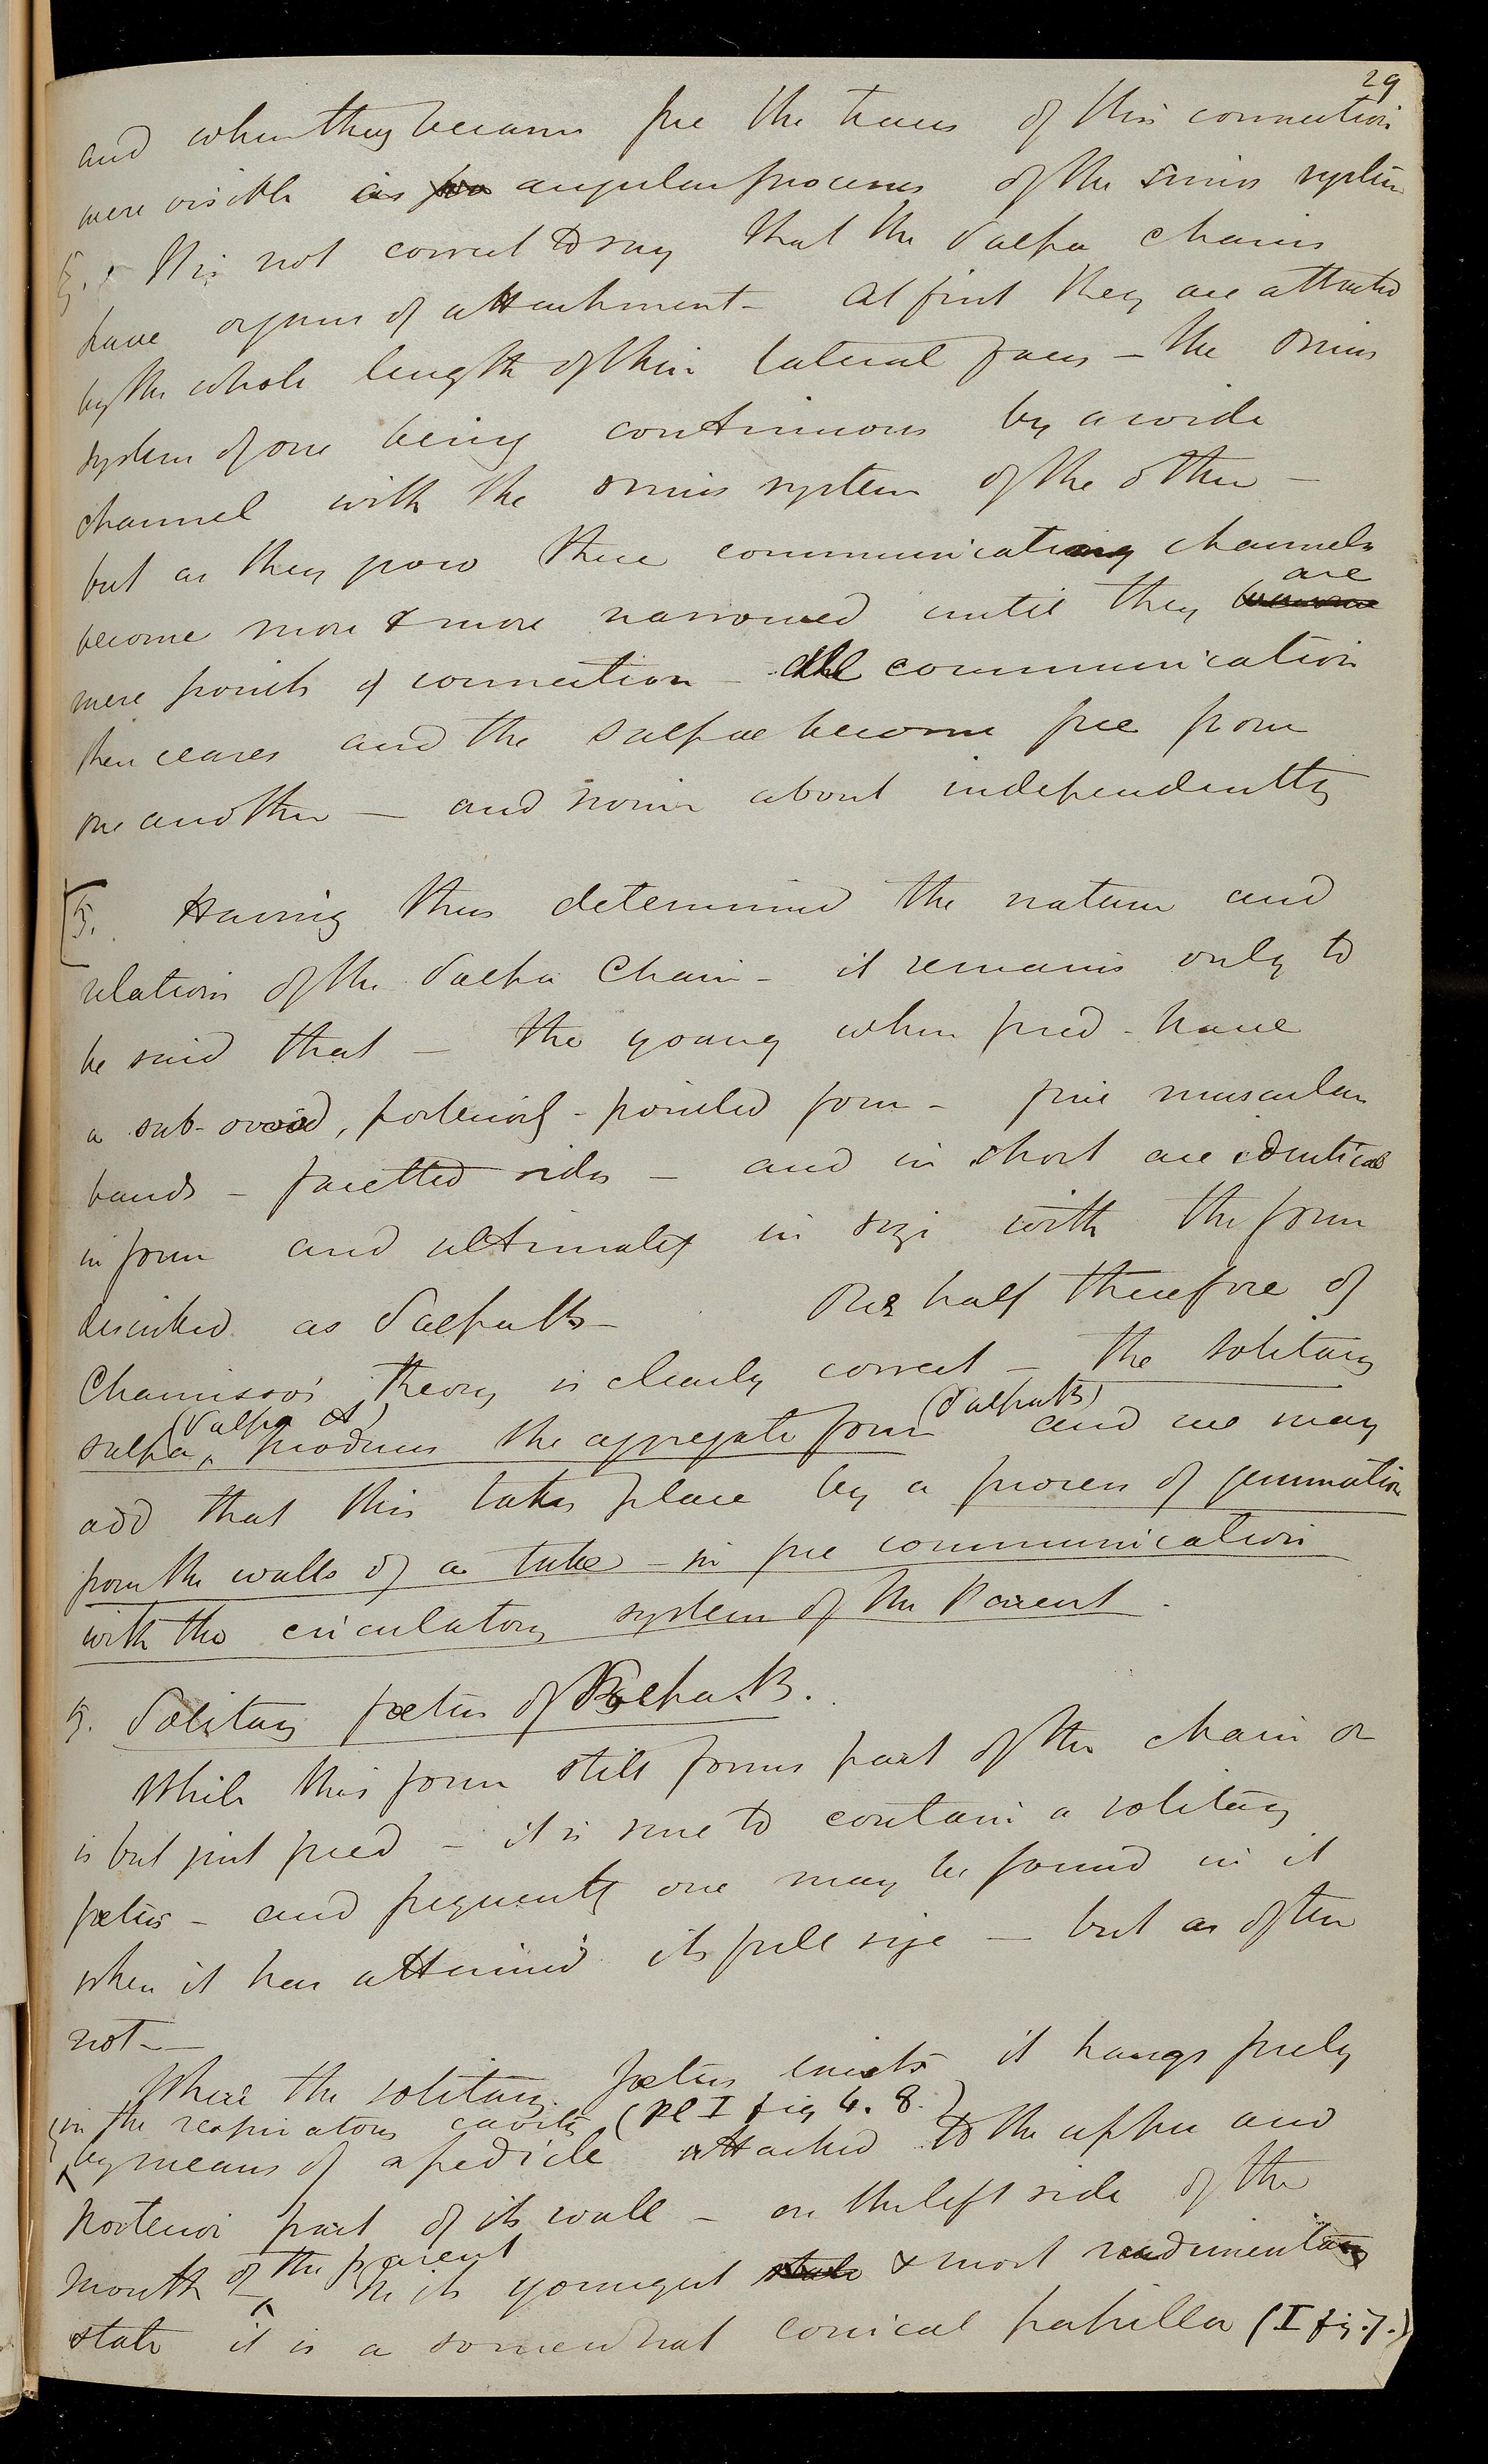 29
and when they became free the traces of this connection
were visible as angular processes of the sinus system
§. It is not correct to say that the Salpa chains
have organs of attachment - At first they are attached
by the whole length of their lateral faces - the sinus
system of one being continuous by a wide
channel with the sinus system of the other -
but as they grow these communicating channels
become more & more narrowed until they become are
mere points of connection - All communication
then ceases and the Salpae become free from
one another - and swim about independently
§. Having thus determined the nature and
relations of the Salpa Chain - it remains only to
be said that - the young when freed - have
a sub-ovoid, posteriorly-pointed form - five muscular
bands - facetted sides - and in short are identical
in form and ultimately in size with the form
described as Salpa B - One half therefore of
Chamisso's theory is clearly correct - the solitary
(Salpa A) (Salpa B)
salpa, produces the aggregate form and we may
add that this takes place by a process of gemmation
from the walls of a tube - in free communication
with the circulatory system of the Parent.
§. Solitary fœtus of Salpa B.
While this form still forms part of the chain or
is but just freed - it is sure to contain a solitary
fœtus - and frequently one may be found in it
when it has attained its full size - but as often
not -
Where the solitary fœtus exists it hangs freely
in the respiratory cavity (Pl I fig 4. 8.)
by means of a pedicle attached to the upper and
posterior part of its wall - on the left side of the
mouth of the parent - In its youngest state & most rudimentary
state it is a somewhat conical papilla (I fig. 7.)